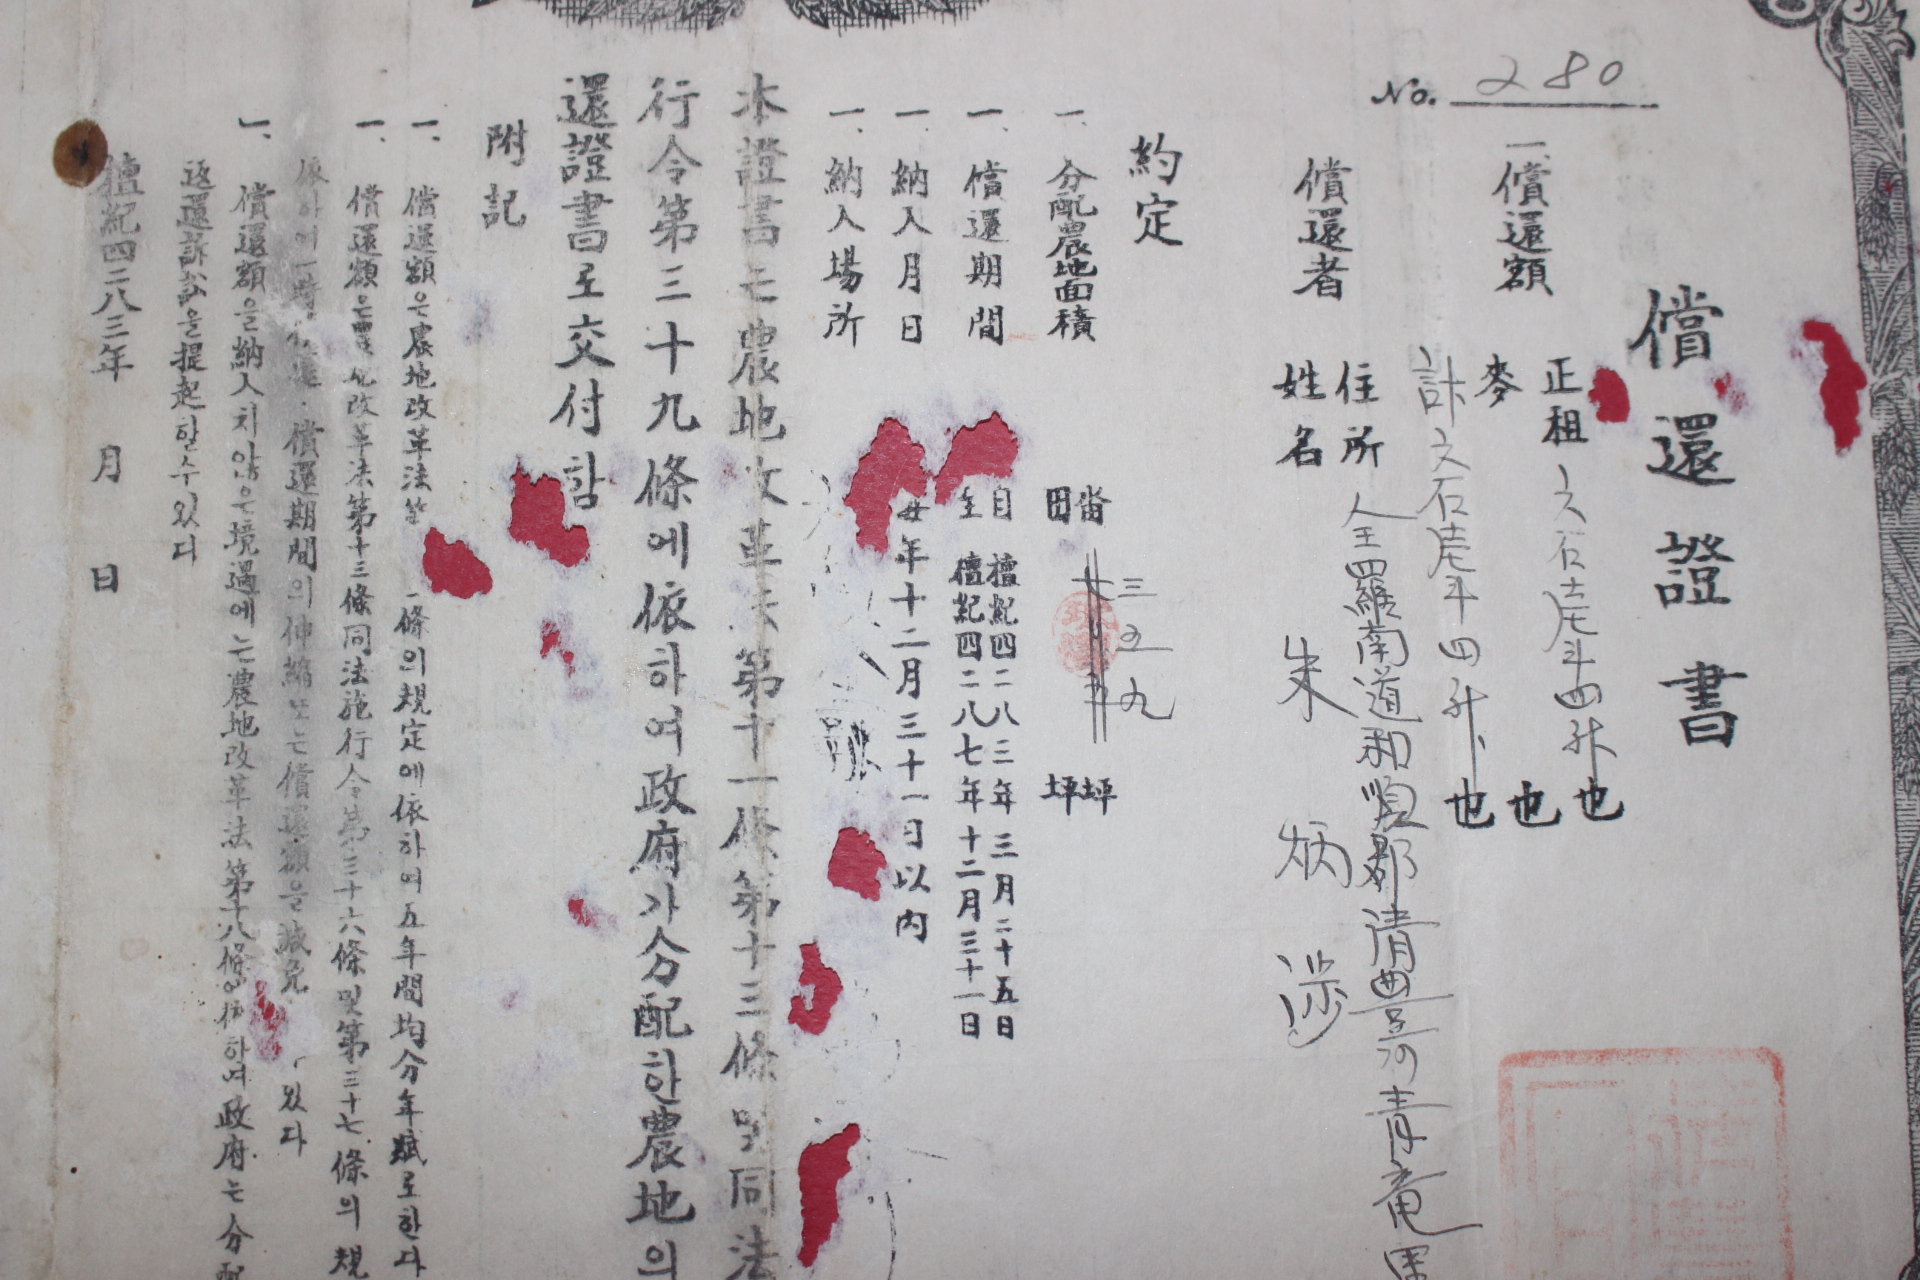 No. 280
償還證書
一、償還額
正租 六石陸斗四升也
麥 也
計 六石陸斗四升也
償還者
住所 全羅南道和順郡清豊
姓名 朱炳
約定
一、分配農地面積
畓 三五九 坪
田 坪
一、償還期間
自 檀紀四二八三年三月二十五日
至 檀紀四二八七年十二月三十一日
一、納入月日 每年十二月三十一日以內
一、納入場所
本證書는農地改革法第十一條第十三條및同法
行令第三十九條에依하여政府가分配한農地의
還證書로交付함
附記
一、償還額은農地改革法第 條의規定에依하여五年間均分年賦로한다
一、償還額은農地改革法第十三條同法施行令第三十六條및第三十七條의規
依하여一時 償還期間의伸縮또는償還額을減免 있다
一、償還額을納入치않은境遇에는農地改革法第十八條에依하여政府는分配
返還訴訟을提起할수있다
檀紀四二八三年 月 日